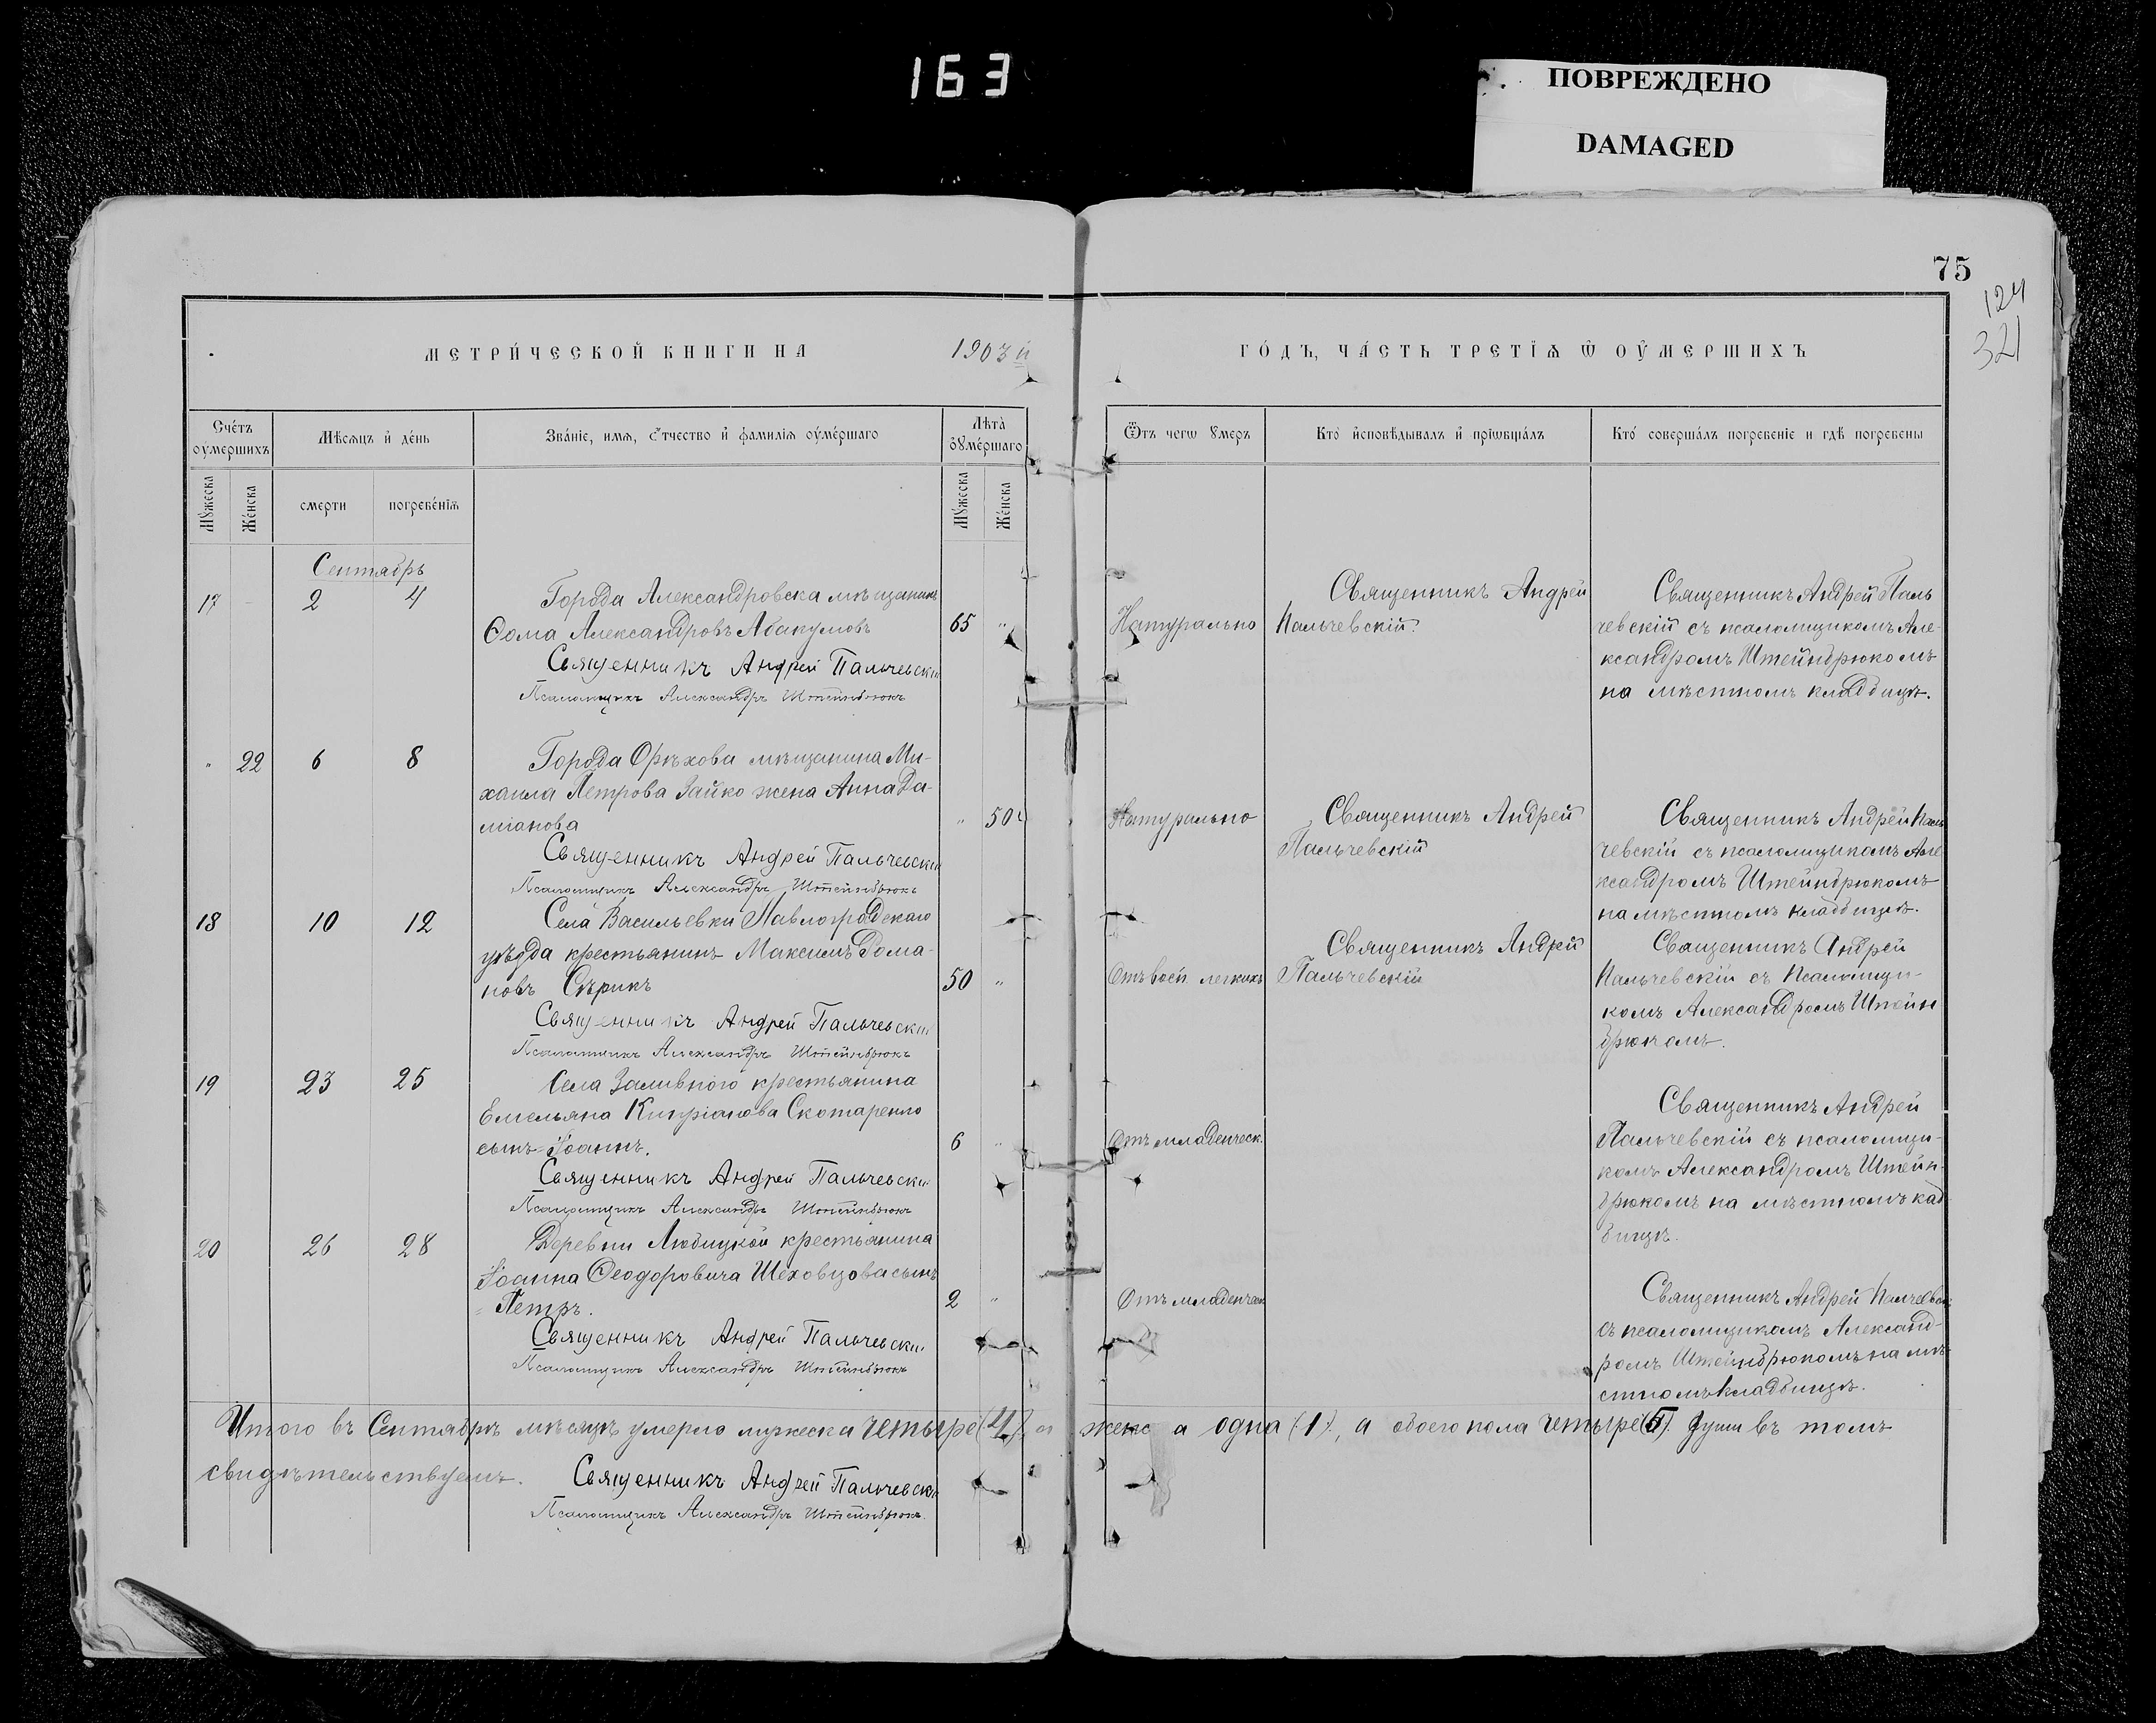 163
ПОВРЕЖДЕНО
DAMAGED
75
124
321
МЕТРИ́ЧЕСКОЙ КНИГИ НА 1903 й ГО́ДЪ, ЧА́СТЬ ТРЕТІѦ Ѡ ОУ҆МЕРШИХЪ
Сче́тъ оумершихъ
Мѣсѧцъ и҆ де́нь
Зва́нїе, имѧ, ѻтчество и҆ фамилїѧ оуме́ршаго
Лѣта̀ оуме́ршаго
Ѿтъ чегѡ ꙋмеръ
Кто̀ и҆сповѣдывалъ и҆ прїѡбща́лъ
Кто́ соверша́лъ погребенїе и гдѣ погребены
Мꙋжеска
Же́нска
смерти
погребе́нїѧ
Мꙋжеска
Же́нска
Сентябрь
17 2 4
Города Александровска мѣщанинъ
Ѳома Александровъ Абакумовъ
65 "
Священникъ Андрей Пальчевскій
Псаломщикъ Александръ Штейнбрюкъ
Натурально
Священникъ Андрей
Пальчевскій.
Священникъ Андрей Паль
чевскій съ псаломщикомъ Але-
ксандромъ Штейнбрюкомъ
на мѣстномъ кладбищѣ.
" 22 6 8
Города Орѣхова мѣщанина Ми-
хаила Петрова Зайко жена Анна Да-
міанова
" 50
Священникъ Андрей Пальчевскій
Псаломщикъ Александръ Штейнбрюкъ
Натурально
Священникъ Андрей
Пальчевскій
Священникъ Андрей Паль
чевскій съ псаломщикомъ Але-
ксандромъ Штейнбрюкомъ
на мѣстномъ кладбищѣ.
18 10 12
Села Васильевки Павлоградскаго
уѣзда крестьянинъ Максимъ Рома-
новъ Сѣрикъ
50 "
Священникъ Андрей Пальчевскій
Псаломщикъ Александръ Штейнбрюкъ
Отъ восп легкихъ
Священникъ Андрей
Пальчевскій
Священникъ Андрей
Пальчевскій съ Псаломщи-
комъ Александромъ Штейн
брюкомъ.
19 23 25
Села Заливного крестьянина
Емельяна Кипріанова Скотаренко
сынъ Іоаннъ.
6 "
Священникъ Андрей Пальчевскій
Псаломщикъ Александръ Штейнбрюкъ
Отъ младенческ.
Священникъ Андрей
Пальчевскій съ псаломщи-
комъ Александромъ Штейн-
брюкомъ на мѣстномъ кад
бищѣ.
20 26 28
Деревни Любицкой крестьянина
Іоанна Ѳеодоровича Шеховцова сынъ
Петръ.
2 "
Священникъ Андрей Пальчевскій
Псаломщикъ Александръ Штейнбрюкъ
Отъ младенческ
Священникъ Андрей Пальчевскі
съ псаломщикомъ Александ-
ромъ Штейнбрюкомъ на мѣ-
стномъ кладбищѣ.
Итого въ Сентябрѣ мѣсяцѣ умерло мужеска четыре (4), а женс а одна (1), а обоего пола четыре (5) души въ томъ
свидѣтельствуемъ. Священникъ Андрей Пальчевскій
Псаломщикъ Александръ Штейнбрюкъ.